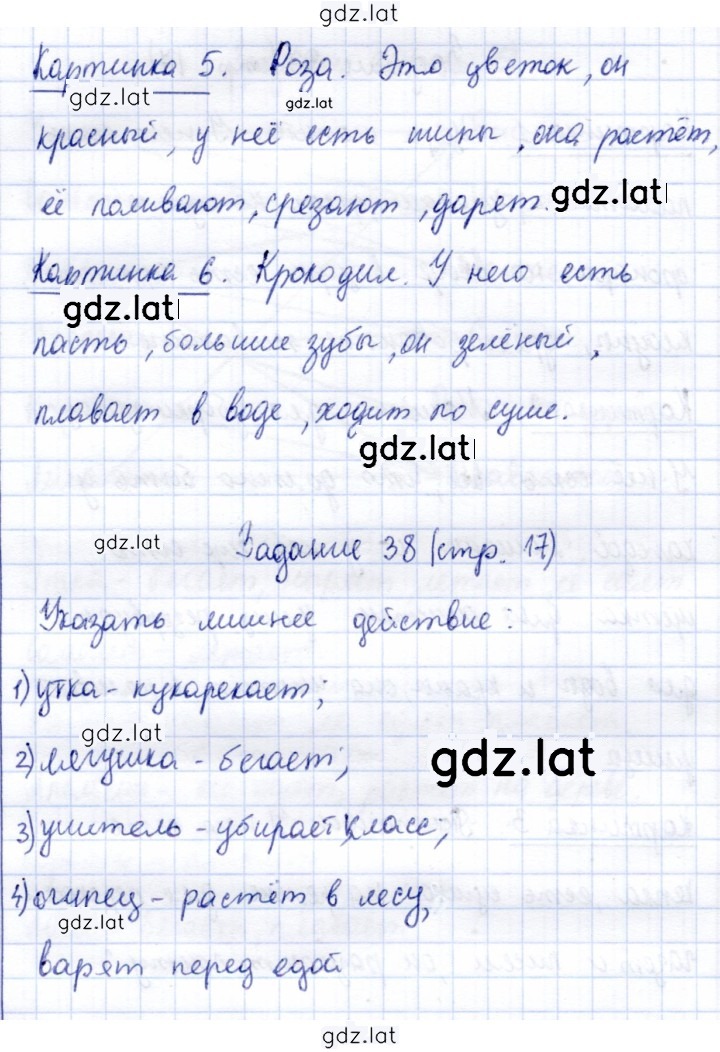 gdz.lat
Картинка 5. Роза. Это цветок, он
gdz.lat gdz.lat
красный, у неё есть шипы, она растёт,
её поливают, срезают, дарят.
gdz.lat
Картинка 6. Крокодил. У него есть
gdz.lat
пасть, большие зубы, он зелёный,
плавает в воде, ходит по суше.
gdz.lat
gdz.lat
Задание 38 (стр. 17)
Указать лишнее действие:
1) утка - кукарекает;
gdz.lat
2) лягушка - бегает;
gdz.lat
3) учитель - убирает класс;
4) огурец - растёт в лесу,
gdz.lat
варят перед едой
gdz.lat